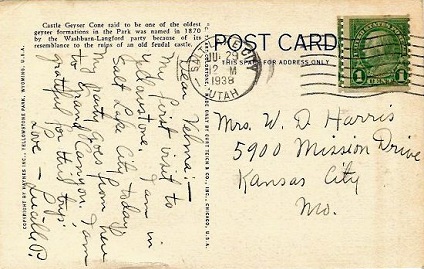 Castle Geyser Cone said to be one of the oldest
geyser formations in the Park was named in 1870
by the Washburn-Langford party because of its
resemblance to the ruins of an old feudal castle.
Dear Velma:—
My first visit to
Yellowstone. I am in
Salt Lake City today.
My party goes from here
to Grand Canyon. I am
grateful for this trip.
Love — Lucille P.
COPYRIGHT BY HAYNES INC., YELLOWSTONE PARK, WYOMING, U.S.A.
GENUINE CURTEICH-CHICAGO
POST CARD
THIS SPACE FOR ADDRESS ONLY
SALT LAKE CITY
1938
UTAH
1 CENT 1
Mrs. W. D. Harris
5900 Mission Drive
Kansas City
Mo.